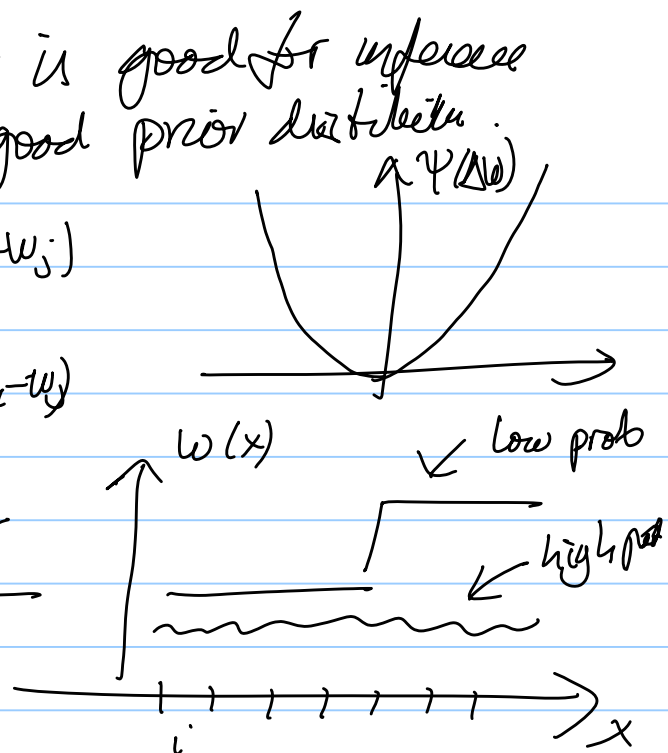 is good for inference
good prior distribution.
Ψ(Δω)
-wj)
-wj)
ω(x)
low prob
high prob
i
x